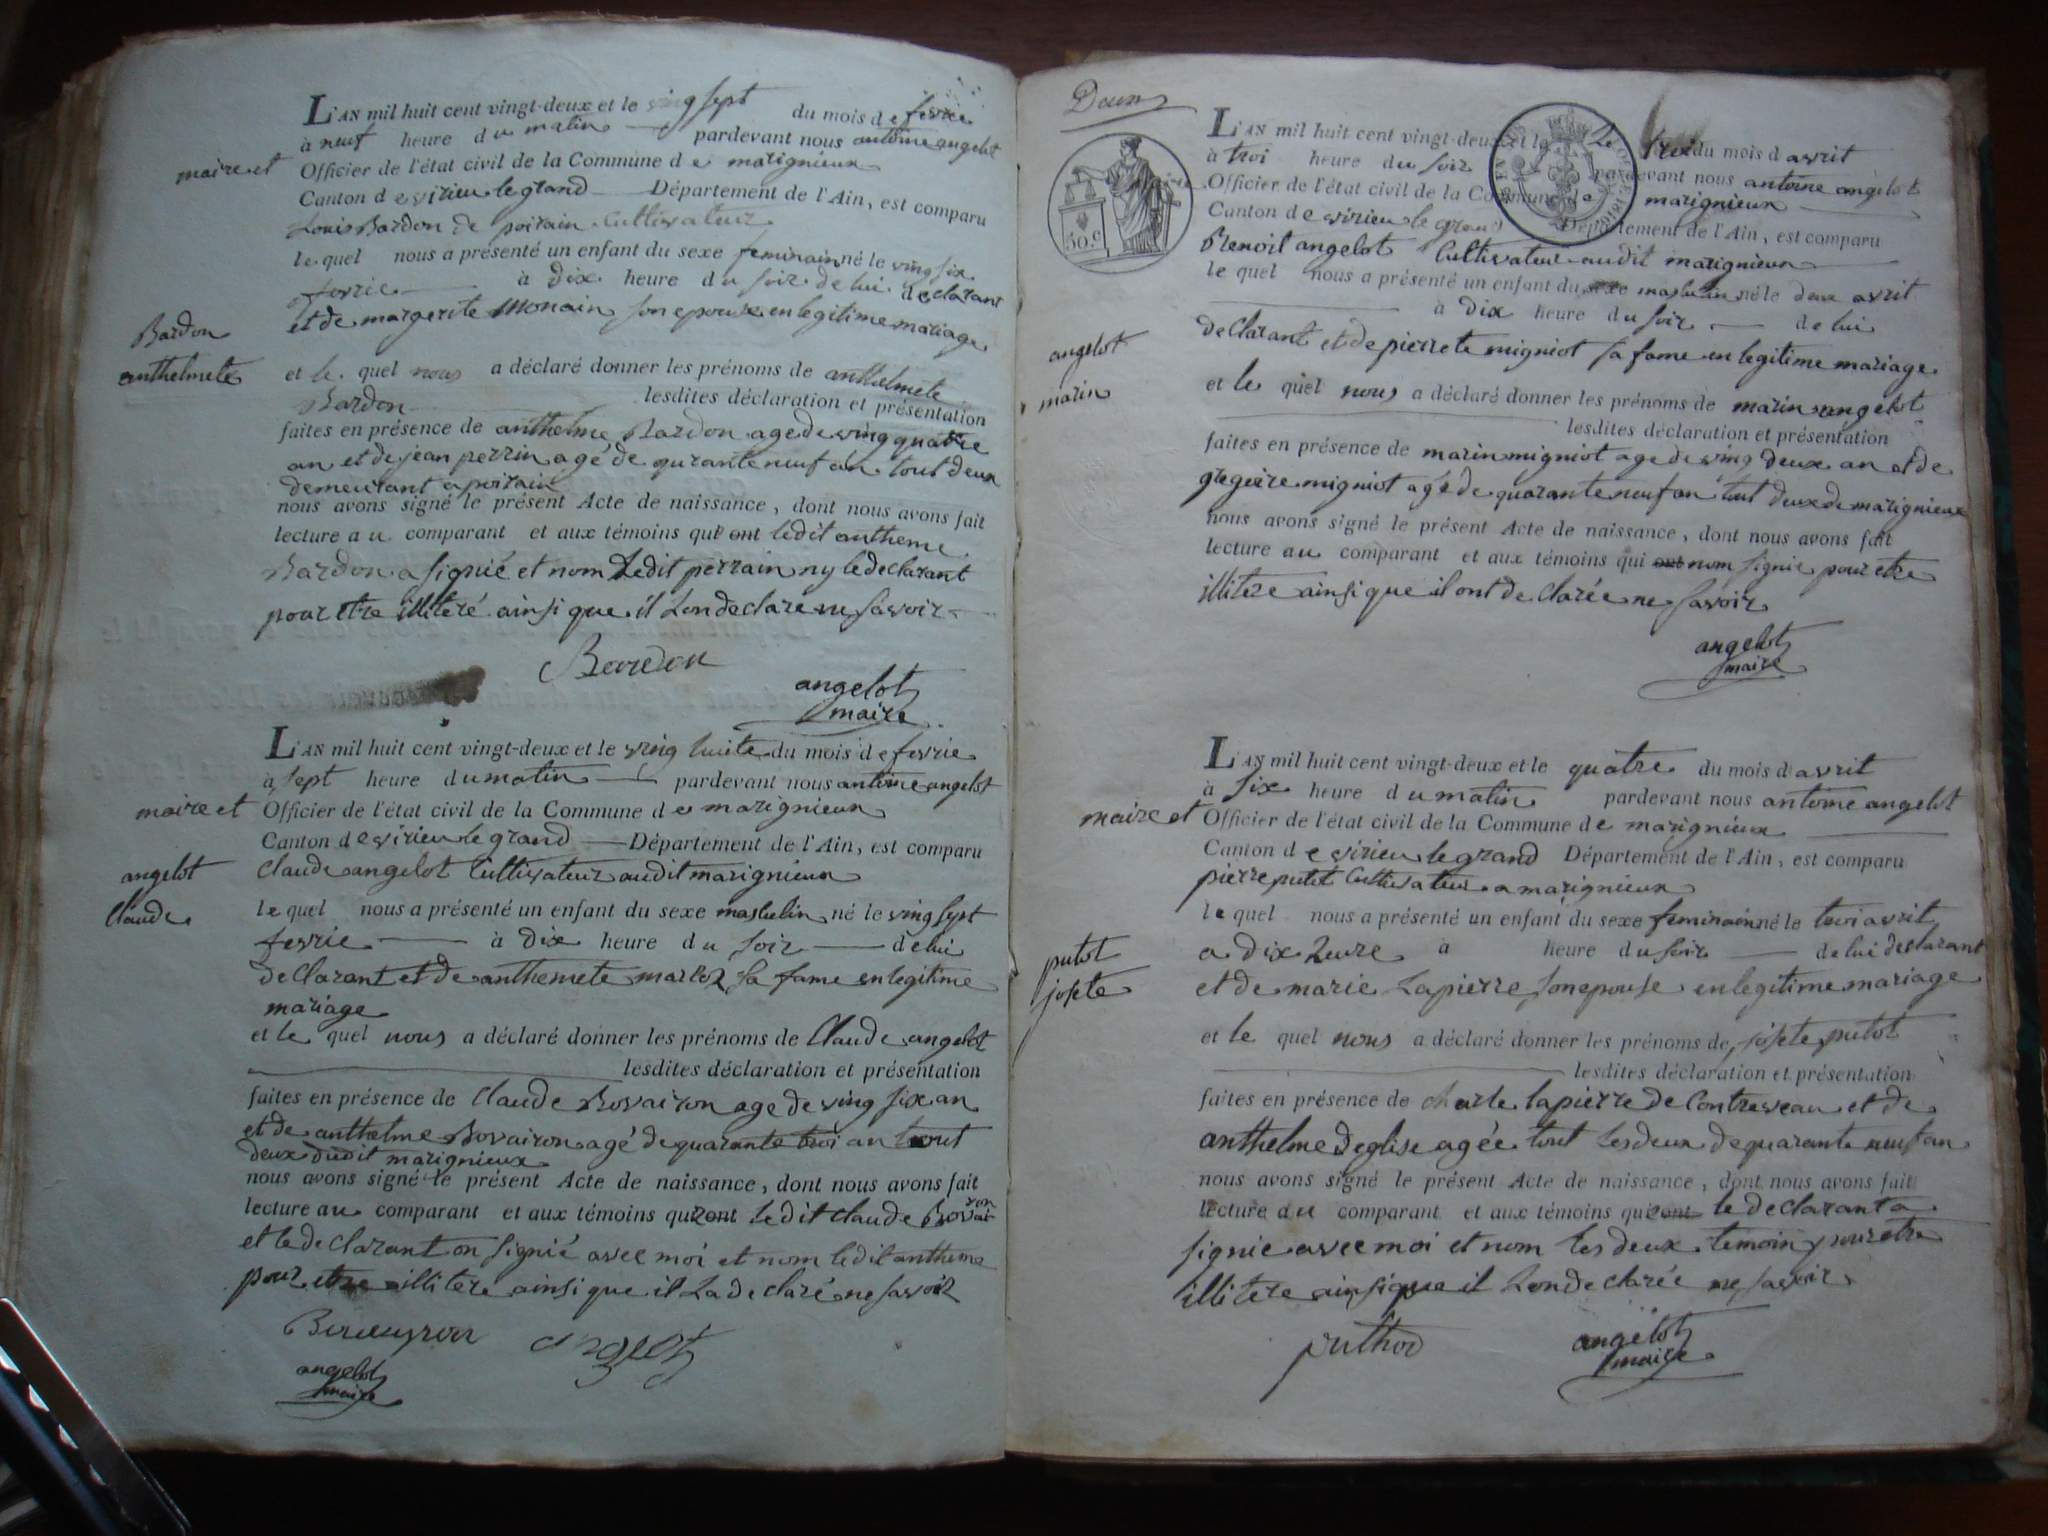 L'AN mil huit cent vingt-deux et le ving sept du mois de fevrie
à neuf heure du matin pardevant nous antoine angelot
maire et Officier de l'état civil de la Commune de marignieux
Canton de virieu le grand Département de l'Ain, est comparu
Louis Bardon de poirain Cultivateur
le quel nous a présenté un enfant du sexe feminain né le ving six
fevrie à dix heure du soir de lui declarant
et de margerite monain son epouse en legitime mariage
Bardon
anthelmete
et le quel nous a déclaré donner les prénoms de anthelmete
Bardon lesdites déclaration et présentation
faites en présence de anthelme Bardon age de ving quatre
an et de jean perrin agé de qurante neuf an tout deux
demeurant a poirain
nous avons signé le présent Acte de naissance, dont nous avons fait
lecture au comparant et aux témoins qui ont ledit antheme
Bardon a signié et nom Ledit perrain ny le declarant
pour etre illiteré ainsi que il Lon declare ne savoir
Bardon
angelot
maire
L'AN mil huit cent vingt-deux et le ving huite du mois de fevrie
à sept heure du matin pardevant nous antoine angelot
maire et Officier de l'état civil de la Commune de marignieux
Canton de virieu le grand Département de l'Ain, est comparu
angelot
Claude
Claude angelot Cultivateur audit marignieux
le quel nous a présenté un enfant du sexe maskulin né le ving sept
fevrie à dix heure du soir de lui
declarant et de anthemete martoz sa fame en legitime
mariage
et le quel nous a déclaré donner les prénoms de Claude angelot
lesdites déclaration et présentation
faites en présence de Claude Bovairon age de ving six an
et de anthelme Bovairon agé de quarante troi an tout
deux dudit marignieux
nous avons signé le présent Acte de naissance, dont nous avons fait
lecture au comparant et aux témoins qui ont ledit claude Bovairon
et le declarant on signié avec moi et nom ledit antheme
pour etre illitere ainsi que il La declaré ne savoir
angelot
angelot
maire
L'AN mil huit cent vingt-deux et le troi du mois d avrit
à troi heure du soir pardevant nous antoine angelot
Officier de l'état civil de la Commune de marignieux
50.c
Canton de virieu le grand Département de l'Ain, est comparu
Benoit angelot Cultivateur audit marignieux
le quel nous a présenté un enfant du sexe maskulin né le deux avrit
à dix heure du soir de lui
declarant et de pierrete migniot sa fame en legitime mariage
angelot
marin
et le quel nous a déclaré donner les prénoms de marin angelot
lesdites déclaration et présentation
faites en présence de marin migniot age de ving deux an et de
gregoire migniot agé de quarante neuf an tout deux de marignieux
nous avons signé le présent Acte de naissance, dont nous avons fait
lecture au comparant et aux témoins qui ont nom signie pour etre
illitere ainsi que il ont declarée ne savoir
angelot
maire
L'AN mil huit cent vingt-deux et le quatre du mois d avrit
à six heure du matin pardevant nous antoine angelot
maire et Officier de l'état civil de la Commune de marignieux
Canton de virieu le grand Département de l'Ain, est comparu
pierre putot Cultivateur a marignieux
le quel nous a présenté un enfant du sexe feminain né le troi avrit
a dix heure à heure du soir de lui declarant
putot
josete
et de marie Lapierre son epouse en legitime mariage
et le quel nous a déclaré donner les prénoms de josete putot
lesdites déclaration et présentation
faites en présence de charle lapierre de Contreveau et de
anthelme Deglise agée tout les deux de quarante neuf an
nous avons signé le présent Acte de naissance, dont nous avons fait
lecture au comparant et aux témoins qui ont le declarant a
signie avec moi et nom les deux temoin pour etre
illitere ainsi que il Lon declarée ne savoir
puthod
angelot
maire